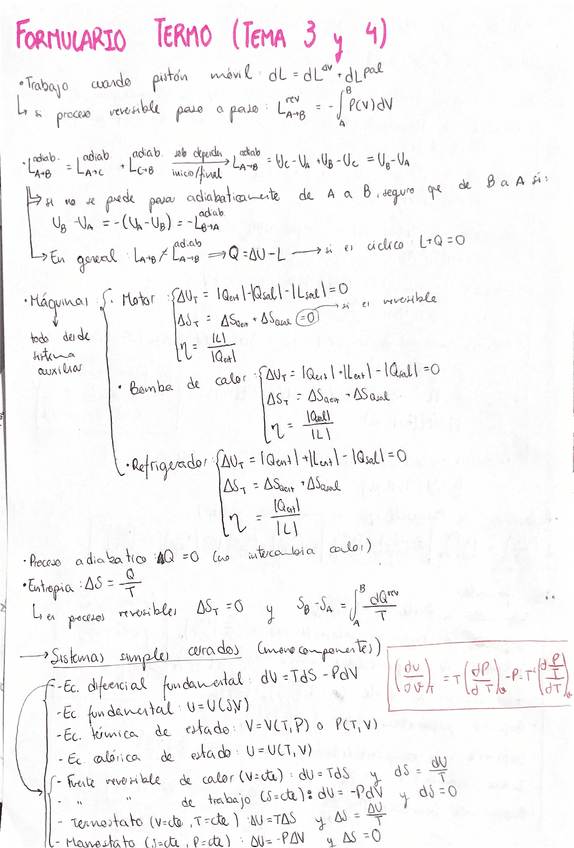 FORMULARIO TERMO (TEMA 3 y 4)
·Trabajo cuando pistón móvil: dL = dL^ΔV + dL^pal
↳ si proceso reversible paso a paso: L^rev_A→B = -∫_A^B P(V)dV
·L^adiab._A→B = L^adiab_A→C + L^adiab._C→B solo depende inicio/final → L^adiab_A→B = U_C-U_A+U_B-U_C = U_B-U_A
↳ si no se puede pasar adiabaticamente de A a B, seguro que de B a A si:
U_B-U_A = -(U_A-U_B) = -L^adiab_B→A
↳ En general: L_A→B ≠ L^adiab_A→B ⇒ Q=ΔU-L → si es cíclico: L+Q=0
·Máquinas
todo desde sistema auxiliar
· Motor: ΔU_T = |Qent|-|Qsal|-|Lsal|=0
ΔS_T = ΔSQent + ΔSQsal =0 → si es reversible
η = |L|/|Qent|
· Bomba de calor: ΔU_T = |Qent|+|Lent|-|Qsal|=0
ΔS_T = ΔSQent + ΔSQsal
η = |Qsal|/|L|
·Refrigerador: ΔU_T = |Qent|+|Lent|-|Qsal|=0
ΔS_T = ΔSQent + ΔSQsal
η = |Qent|/|L|
·Proceso adiabatico: ΔQ=0 (no intercambia calor)
·Entropia: ΔS = Q/T
↳ en procesos reversibles ΔS_T=0 y S_B-S_A = ∫_A^B dQ^rev/T
→ Sistemas simples cerrados (monocomponentes)
-Ec. diferencial fundamental: dU=TdS-PdV
-Ec fundamental: U=U(S,V)
-Ec. térmica de estado: V=V(T,P) o P(T,V)
-Ec calórica de estado: U=U(T,V)
- Fuente reversible de calor (V=cte): dU=TdS y dS=dU/T
- " " de trabajo (S=cte): dU=-PdV y dS=0
- Termostato (V=cte, T=cte): ΔU=TΔS y ΔS=ΔU/T
- Manostato (S=cte, P=cte): ΔU=-PΔV y ΔS=0